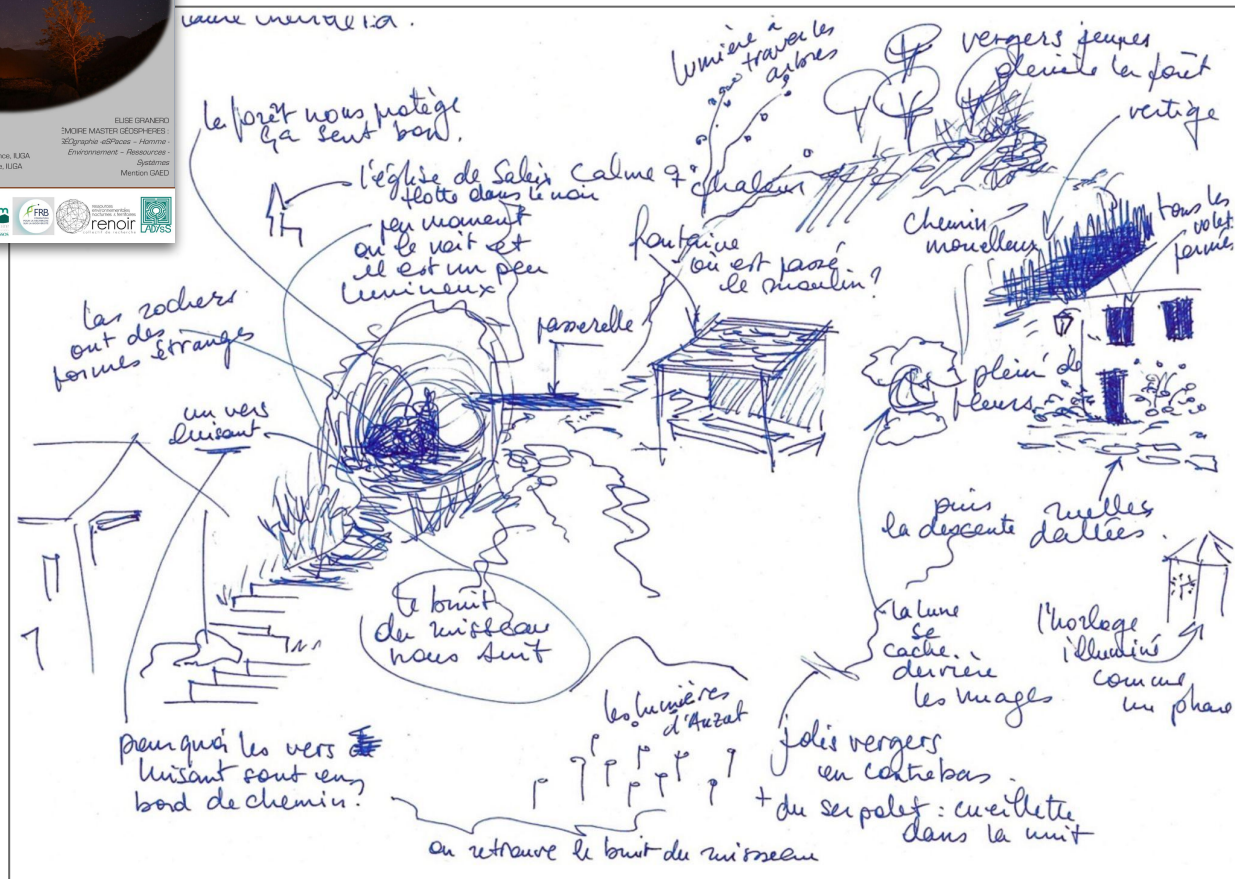 ELISE GRANERO
MEMOIRE MASTER GÉOSPHERES :
GÉOgraphie -eSPaces – Homme -
Environnement – Ressources -
Systèmes
Mention GAED
nce, IUGA
e, IUGA
FRB
renoir
collectif de recherche
LADYSS
la forêt nous protège
ça sent bon.
l'église de Saleix
flotte dans le noir
calme
chaleur
par moment
on le voit et
il est un peu
lumineux
lumière à
travers les
arbres
vergers jeunes
derrière la forêt
vertige
chemin
moelleux
tous les
volets
fermés
fontaine
où est passé
le moulin?
passerelle
Les rochers
ont des
formes étranges
un vers
luisant
plein de
fleurs
puis
la descente
ruelles
dallées.
le bruit
du ruisseau
nous suit
la lune
se
cache
derrière
les nuages
l'horloge
illuminé
comme
un phare
les lumières
d'Auzat
jolis vergers
en contrebas.
+ du serpolet : cueillette
dans la nuit
pourquoi les vers
luisant sont en
bord de chemin?
on retrouve le bruit du ruisseau